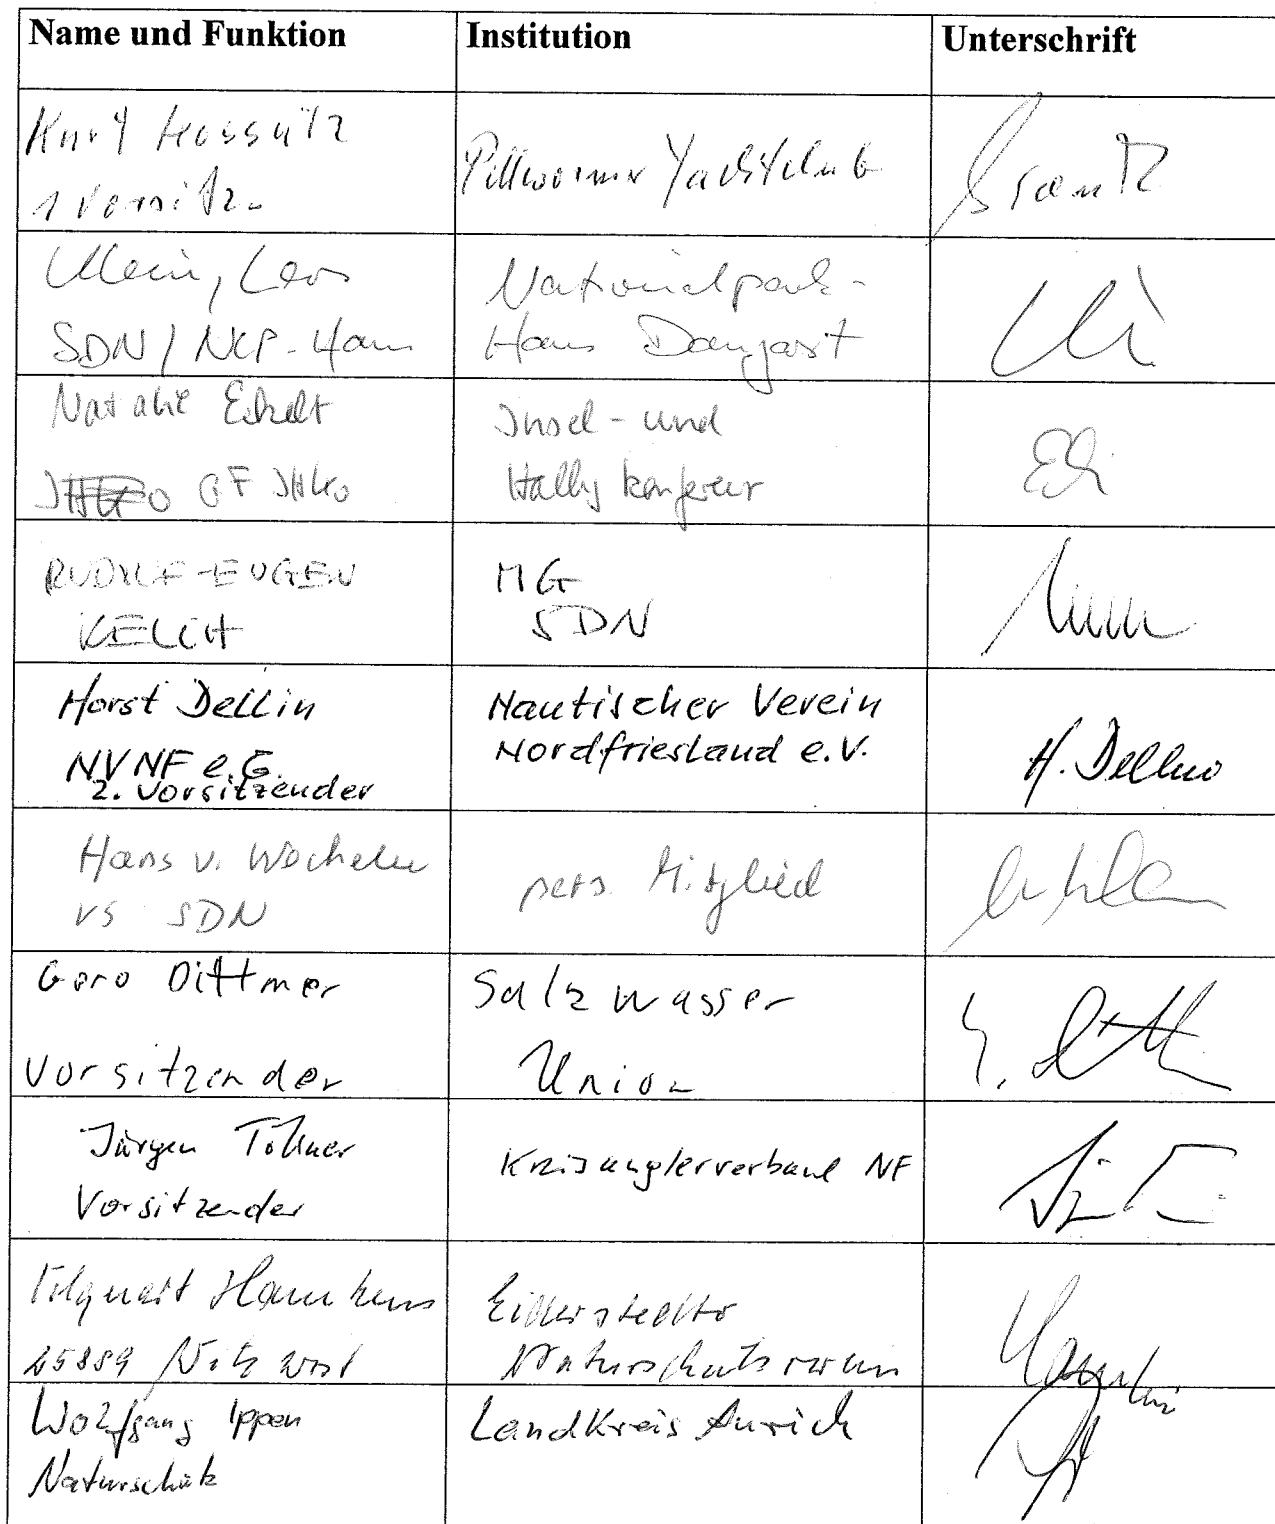 Name und Funktion
Institution
Unterschrift
Kurt
1 Vorsitz.
Pellwormer Yachtclub
Klein, Lars
SDN / NLP-Haus
Nationalpark-
Haus Dangast
Natalie Eckelt
GF IHKo
Insel- und
Halligkonferenz
RUDOLF-EUGEN
KELCH
MG
SDN
Horst Dellin
NVNF e.G.
2. Vorsitzender
Nautischer Verein
Nordfriesland e.V.
H. Dellin
Hans v. Wecheln
VS SDN
pers. Mitglied
Gero Dittmer
Vorsitzender
Salzwasser
Union
Jürgen Töllner
Vorsitzender
Kreisanglerverband NF
Hamkens
25889 Witzwort
Eiderstedter
Naturschutzverein
Wolfgang Ippen
Naturschutz
Landkreis Aurich